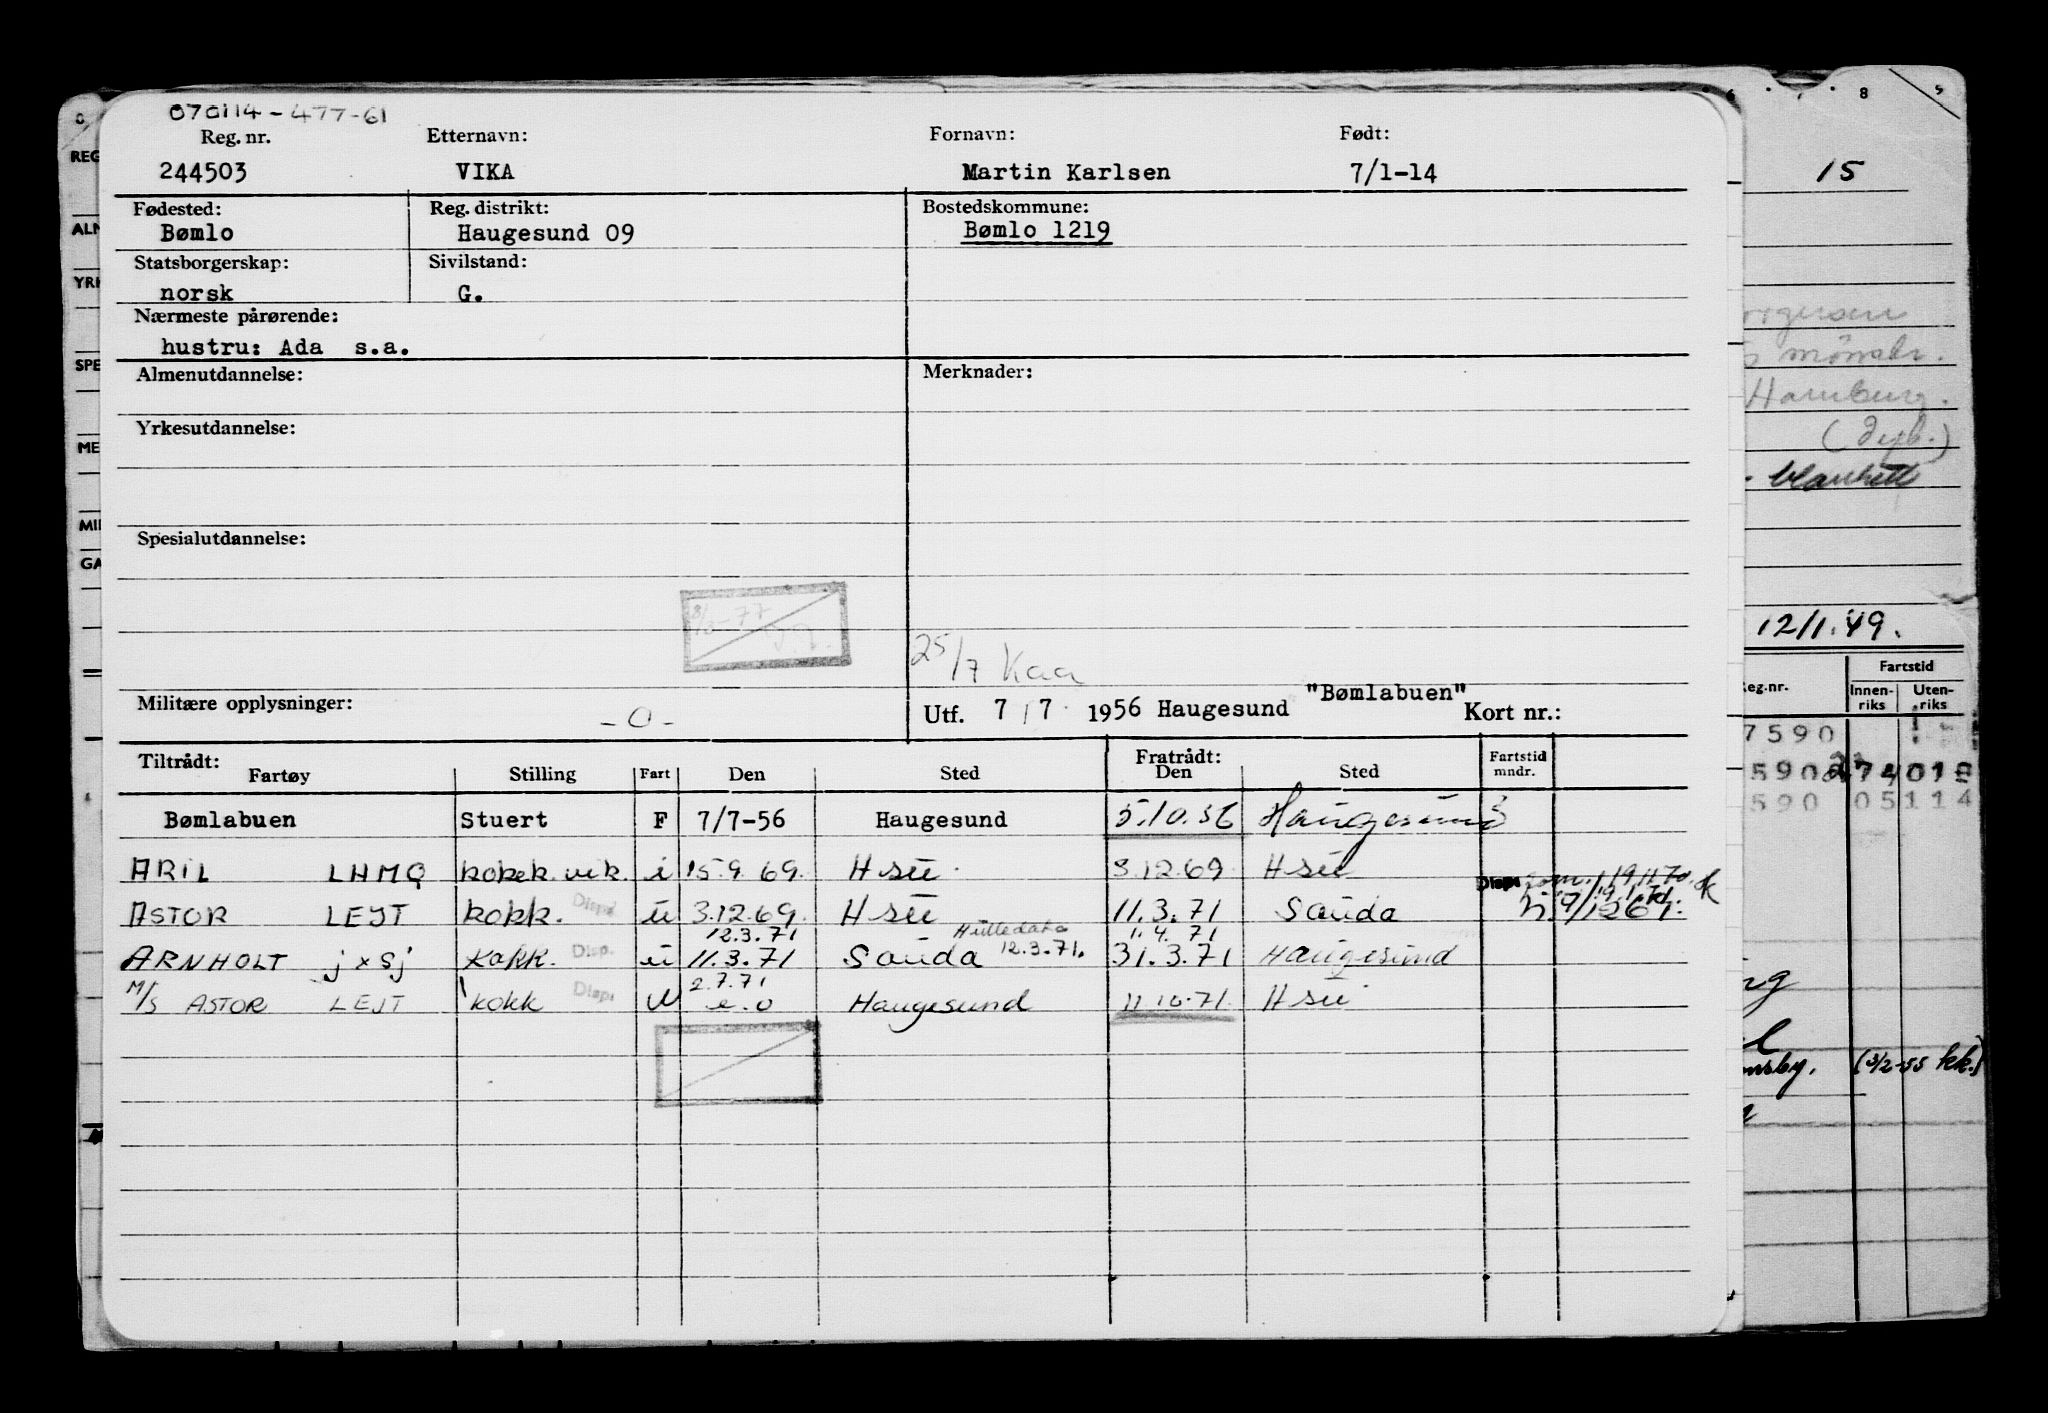 070114-477-61
Reg. nr. Etternavn: Fornavn: Født:
244503 VIKA Martin Karlsen 7/1-14
Fødested: Reg. distrikt: Bostedskommune:
Bømlo Haugesund 09 Bømlo 1219
Statsborgerskap: Sivilstand:
norsk G.
Nærmeste pårørende:
hustru: Ada s.a.
Almenutdannelse: Merknader:
Yrkesutdannelse:
Spesialutdannelse:
25/7 Kaa
Militære opplysninger: -0- Utf. 7/7 1956 Haugesund "Bømlabuen" Kort nr.:
Tiltrådt: Fratrådt: Fartstid mndr.
Fartøy Stilling Fart Den Sted Den Sted
Bømlabuen Stuert F 7/7-56 Haugesund 5.10.56 Haugesund 3
ARIL LHMQ kokk. vik. i 15.9.69. Hsu 3.12.69 Hsu
ASTOR LEJT kokk. Disp. u 3.12.69. Hsu 11.3.71 Sauda
12.3.71 Hulledato 12.3.71. 1.4.71
ARNHOLT jxsj Kokk. Disp. u 11.3.71 Sauda 31.3.71 Haugesund
2.7.71
M/S ASTOR LEJT kokk Disp. u e.o Haugesund 11.10.71. Hsu
15
Hamburg.
12/1.49.
Reg.nr. Fartstid
Innen-riks Uten-riks
7590
590
590 05114
(3/2-55 kk.)